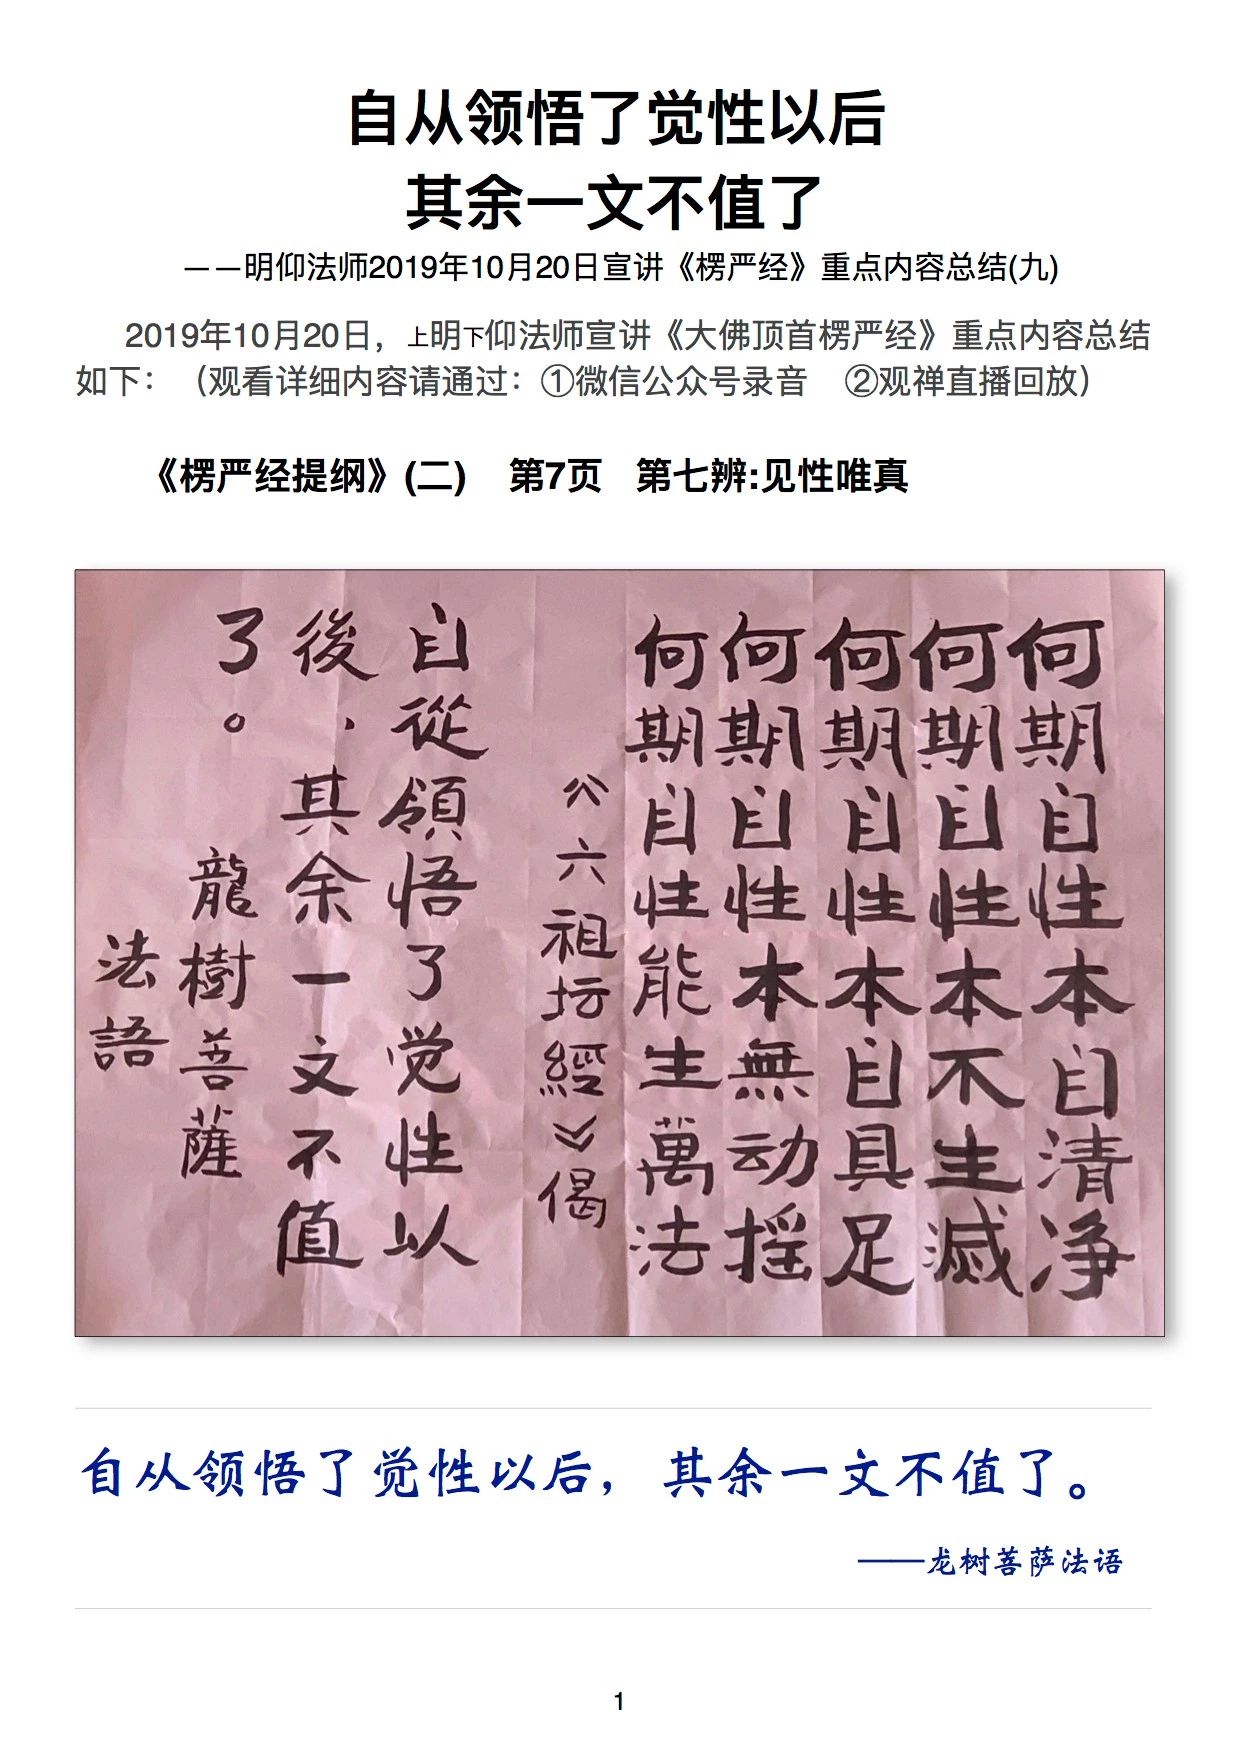 自从领悟了觉性以后
其余一文不值了
——明仰法师2019年10月20日宣讲《楞严经》重点内容总结(九)
2019年10月20日，上明下仰法师宣讲《大佛顶首楞严经》重点内容总结
如下：（观看详细内容请通过：①微信公众号录音 ②观禅直播回放）
《楞严经提纲》(二) 第7页 第七辨:见性唯真
何期自性本自清净
何期自性本不生滅
何期自性本自具足
何期自性本無动摇
何期自性能生萬法
《六祖坛經》偈
自從領悟了觉性以
後，其余一文不值
了。
龍樹菩薩
法語
自从领悟了觉性以后，其余一文不值了。
——龙树菩萨法语
1